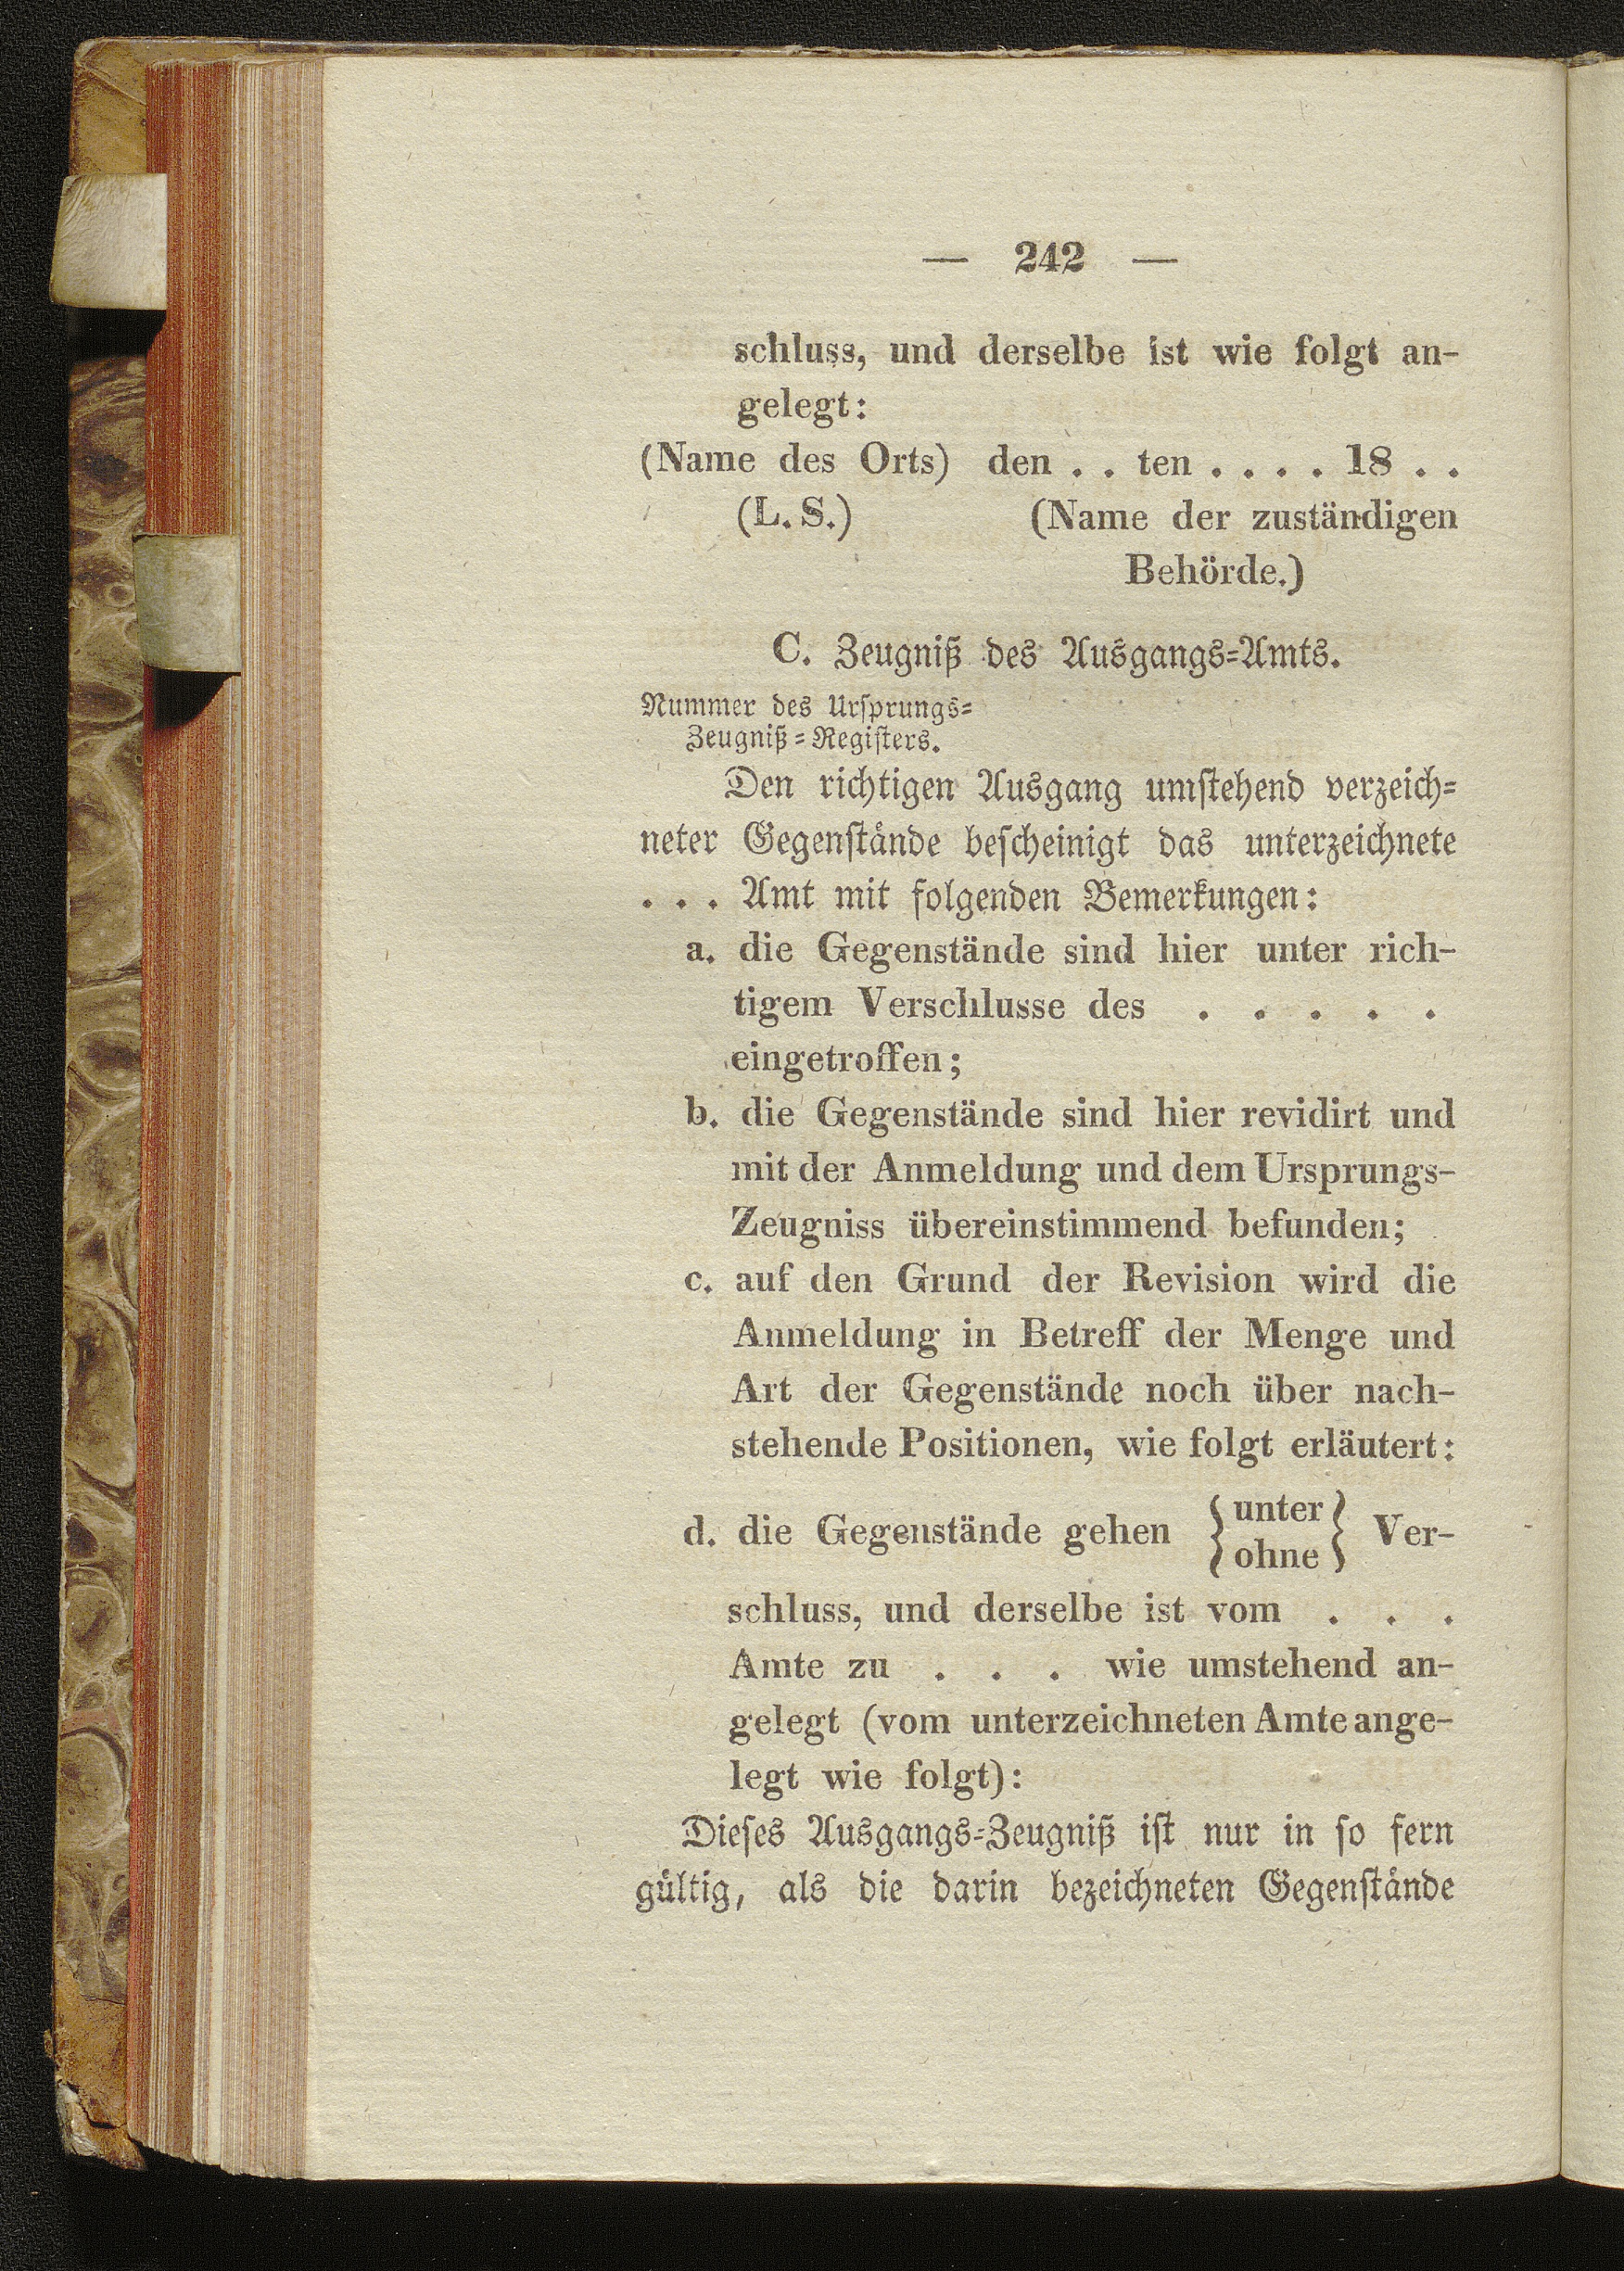 — 242 —
schluss, und derselbe ist wie folgt an-
gelegt:
(Name des Orts) den . . ten . . . . 18 . .
(L. S.) (Name der zuständigen
Behörde.)
C. Zeugniß des Ausgangs-Amts.
Nummer des Ursprungs-
Zeugniß-Registers.
Den richtigen Ausgang umstehend verzeich-
neter Gegenstände bescheinigt das unterzeichnete
. . . Amt mit folgenden Bemerkungen:
a. die Gegenstände sind hier unter rich-
tigem Verschlusse des . . . . .
eingetroffen;
b. die Gegenstände sind hier revidirt und
mit der Anmeldung und dem Ursprungs-
Zeugniss übereinstimmend befunden;
c. auf den Grund der Revision wird die
Anmeldung in Betreff der Menge und
Art der Gegenstände noch über nach-
stehende Positionen, wie folgt erläutert:
d. die Gegenstände gehen {unter
ohne} Ver-
schluss, und derselbe ist vom . . .
Amte zu . . . wie umstehend an-
gelegt (vom unterzeichneten Amte ange-
legt wie folgt):
Dieses Ausgangs-Zeugniß ist nur in so fern
gültig, als die darin bezeichneten Gegenstände